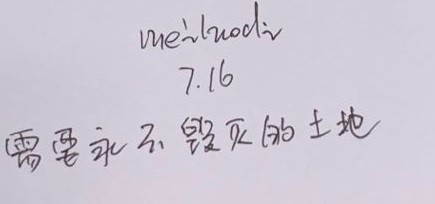 meiluodi
7.16
需要永不毁灭的土地